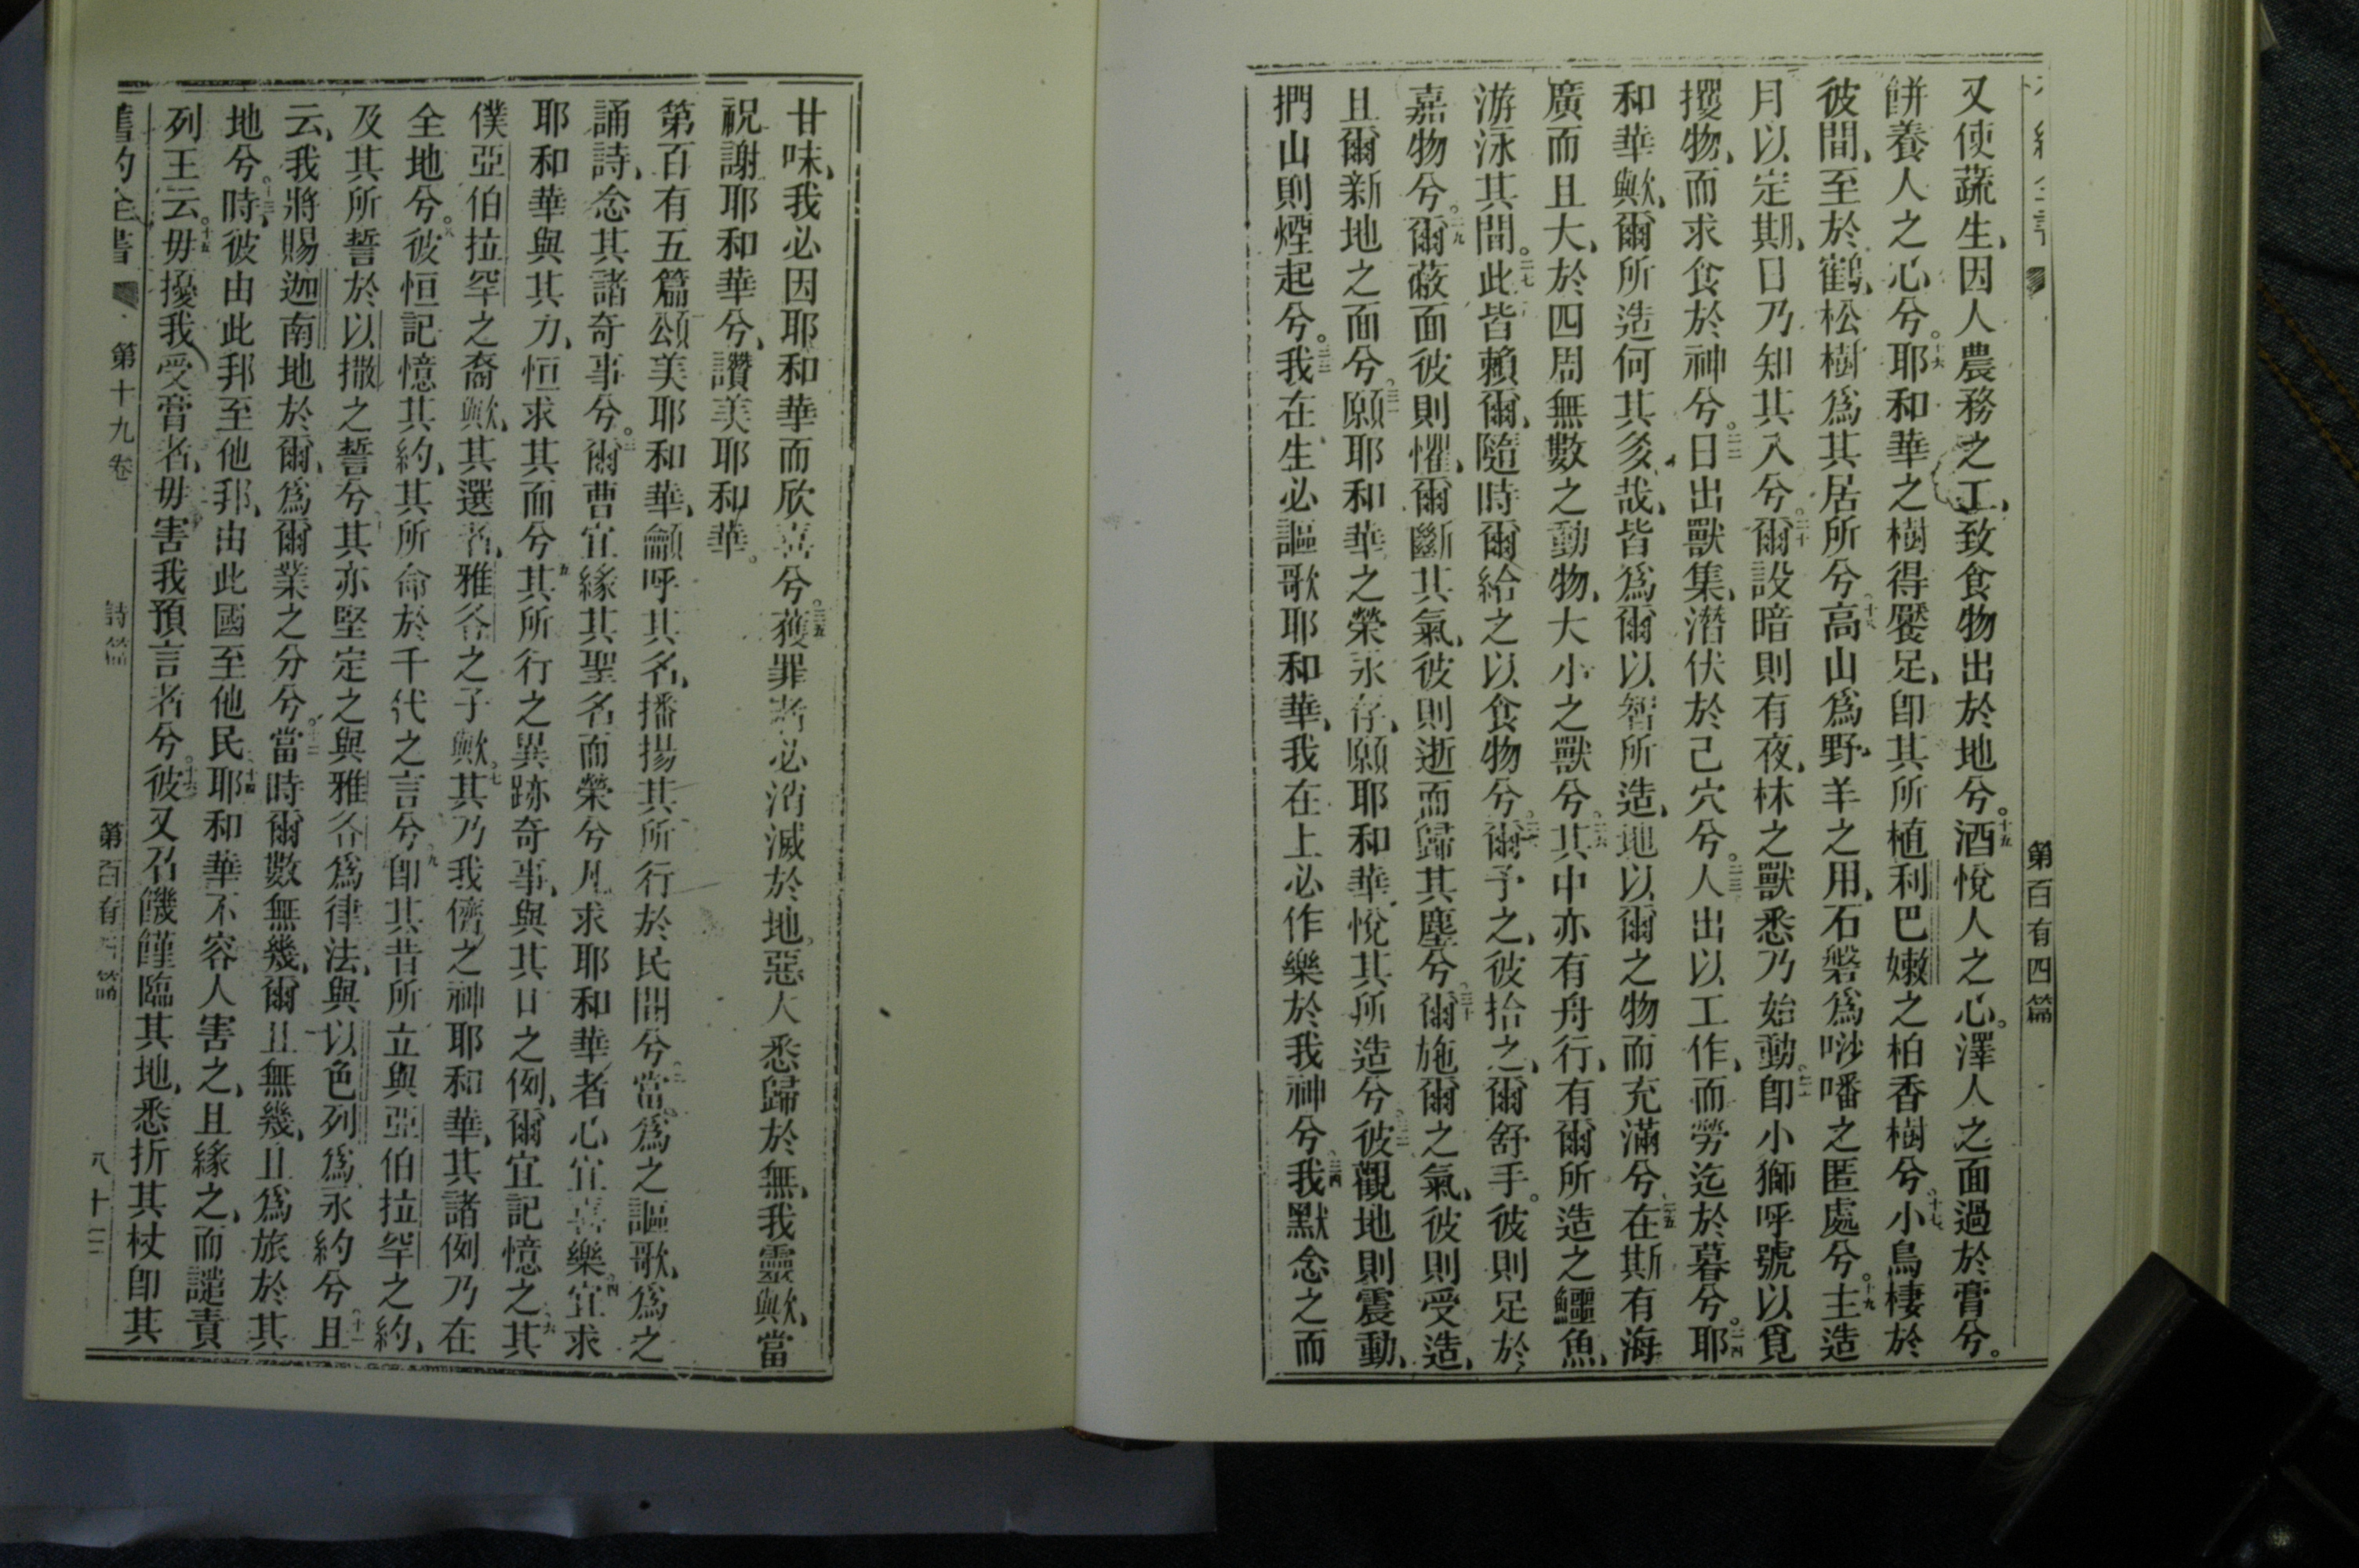 第百有四篇
又使蔬生、因人農務之工、致食物出於地兮。十五酒悅人之心。澤人之面過於膏兮。
餅養人之心兮。十六耶和華之樹得饜足、卽其所植利巴嫩之柏香樹兮、十七小鳥棲於
彼間、至於鶴、松樹爲其居所兮、十八高山爲野羊之用、石磐爲𠵽噃之匿處兮。十九主造
月以定期、日乃知其入兮。二十爾設暗則有夜、林之獸悉乃始動、二一卽小獅呼號以覓
攫物、而求食於神兮。二二日出獸集、潛伏於己穴兮。二三人出以工作、而勞迄於暮兮。二四耶
和華歟、爾所造何其多哉、皆爲爾以智所造、地以爾之物而充滿兮、二五在斯有海
廣而且大、於四周無數之動物、大小之獸兮。二六其中亦有舟行、有爾所造之鱷魚、
游泳其間。二七此皆賴爾、隨時爾給之以食物兮。二八爾予之、彼拾之、爾舒手。彼則足於
嘉物兮。二九爾蔽面彼則懼、爾斷其氣、彼則逝而歸其塵兮。三十爾施爾之氣、彼則受造、
且爾新地之面兮。三一願耶和華之榮永存、願耶和華悅其所造兮。三二彼觀地則震動、
捫山則煙起兮。三三我在生必謳歌耶和華、我在上必作樂於我神兮、三四我默念之而
甘味、我必因耶和華而欣喜兮。三五獲罪者必消滅於地。惡人悉歸於無、我靈歟、當
祝謝耶和華兮、讚美耶和華。
第百有五篇 一頌美耶和華、籲呼其名、播揚其所行於民間兮。二當爲之謳歌、爲之
誦詩、念其諸奇事兮。三爾曹宜緣其聖名而榮兮凡求耶和華者心宜喜樂、四宜求
耶和華與其力、恒求其面兮、五其所行之異跡奇事、與其口之例、爾宜記憶之、六其
僕亞伯拉罕之裔歟、其選者、雅各之子歟。七其乃我儕之神耶和華、其諸例乃在
全地兮。八彼恒記憶其約、其所命於千代之言兮、九卽其昔所立與亞伯拉罕之約、
及其所誓於以撒之誓兮、十其亦堅定之與雅各爲律法、與以色列爲永約兮、十一且
云、我將賜迦南地於爾、爲爾業之分兮。十二當時爾數無幾、爾且無幾、且爲旅於其
地兮。十三時、彼由此邦至他邦、由此國至他民、十四耶和華不容人害之、且緣之、而譴責
列王云。十五毋擾我受膏者、毋害我預言者兮。十六彼又召饑饉臨其地、悉折其杖卽其
舊約全書 第十九卷 詩篇 第百有五篇 八十二